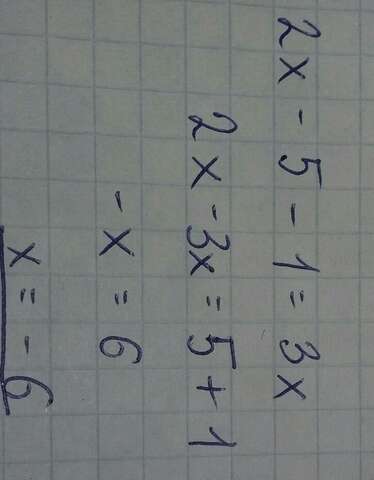 2x - 5 - 1 = 3x
2x - 3x = 5 + 1
- x = 6
x = - 6